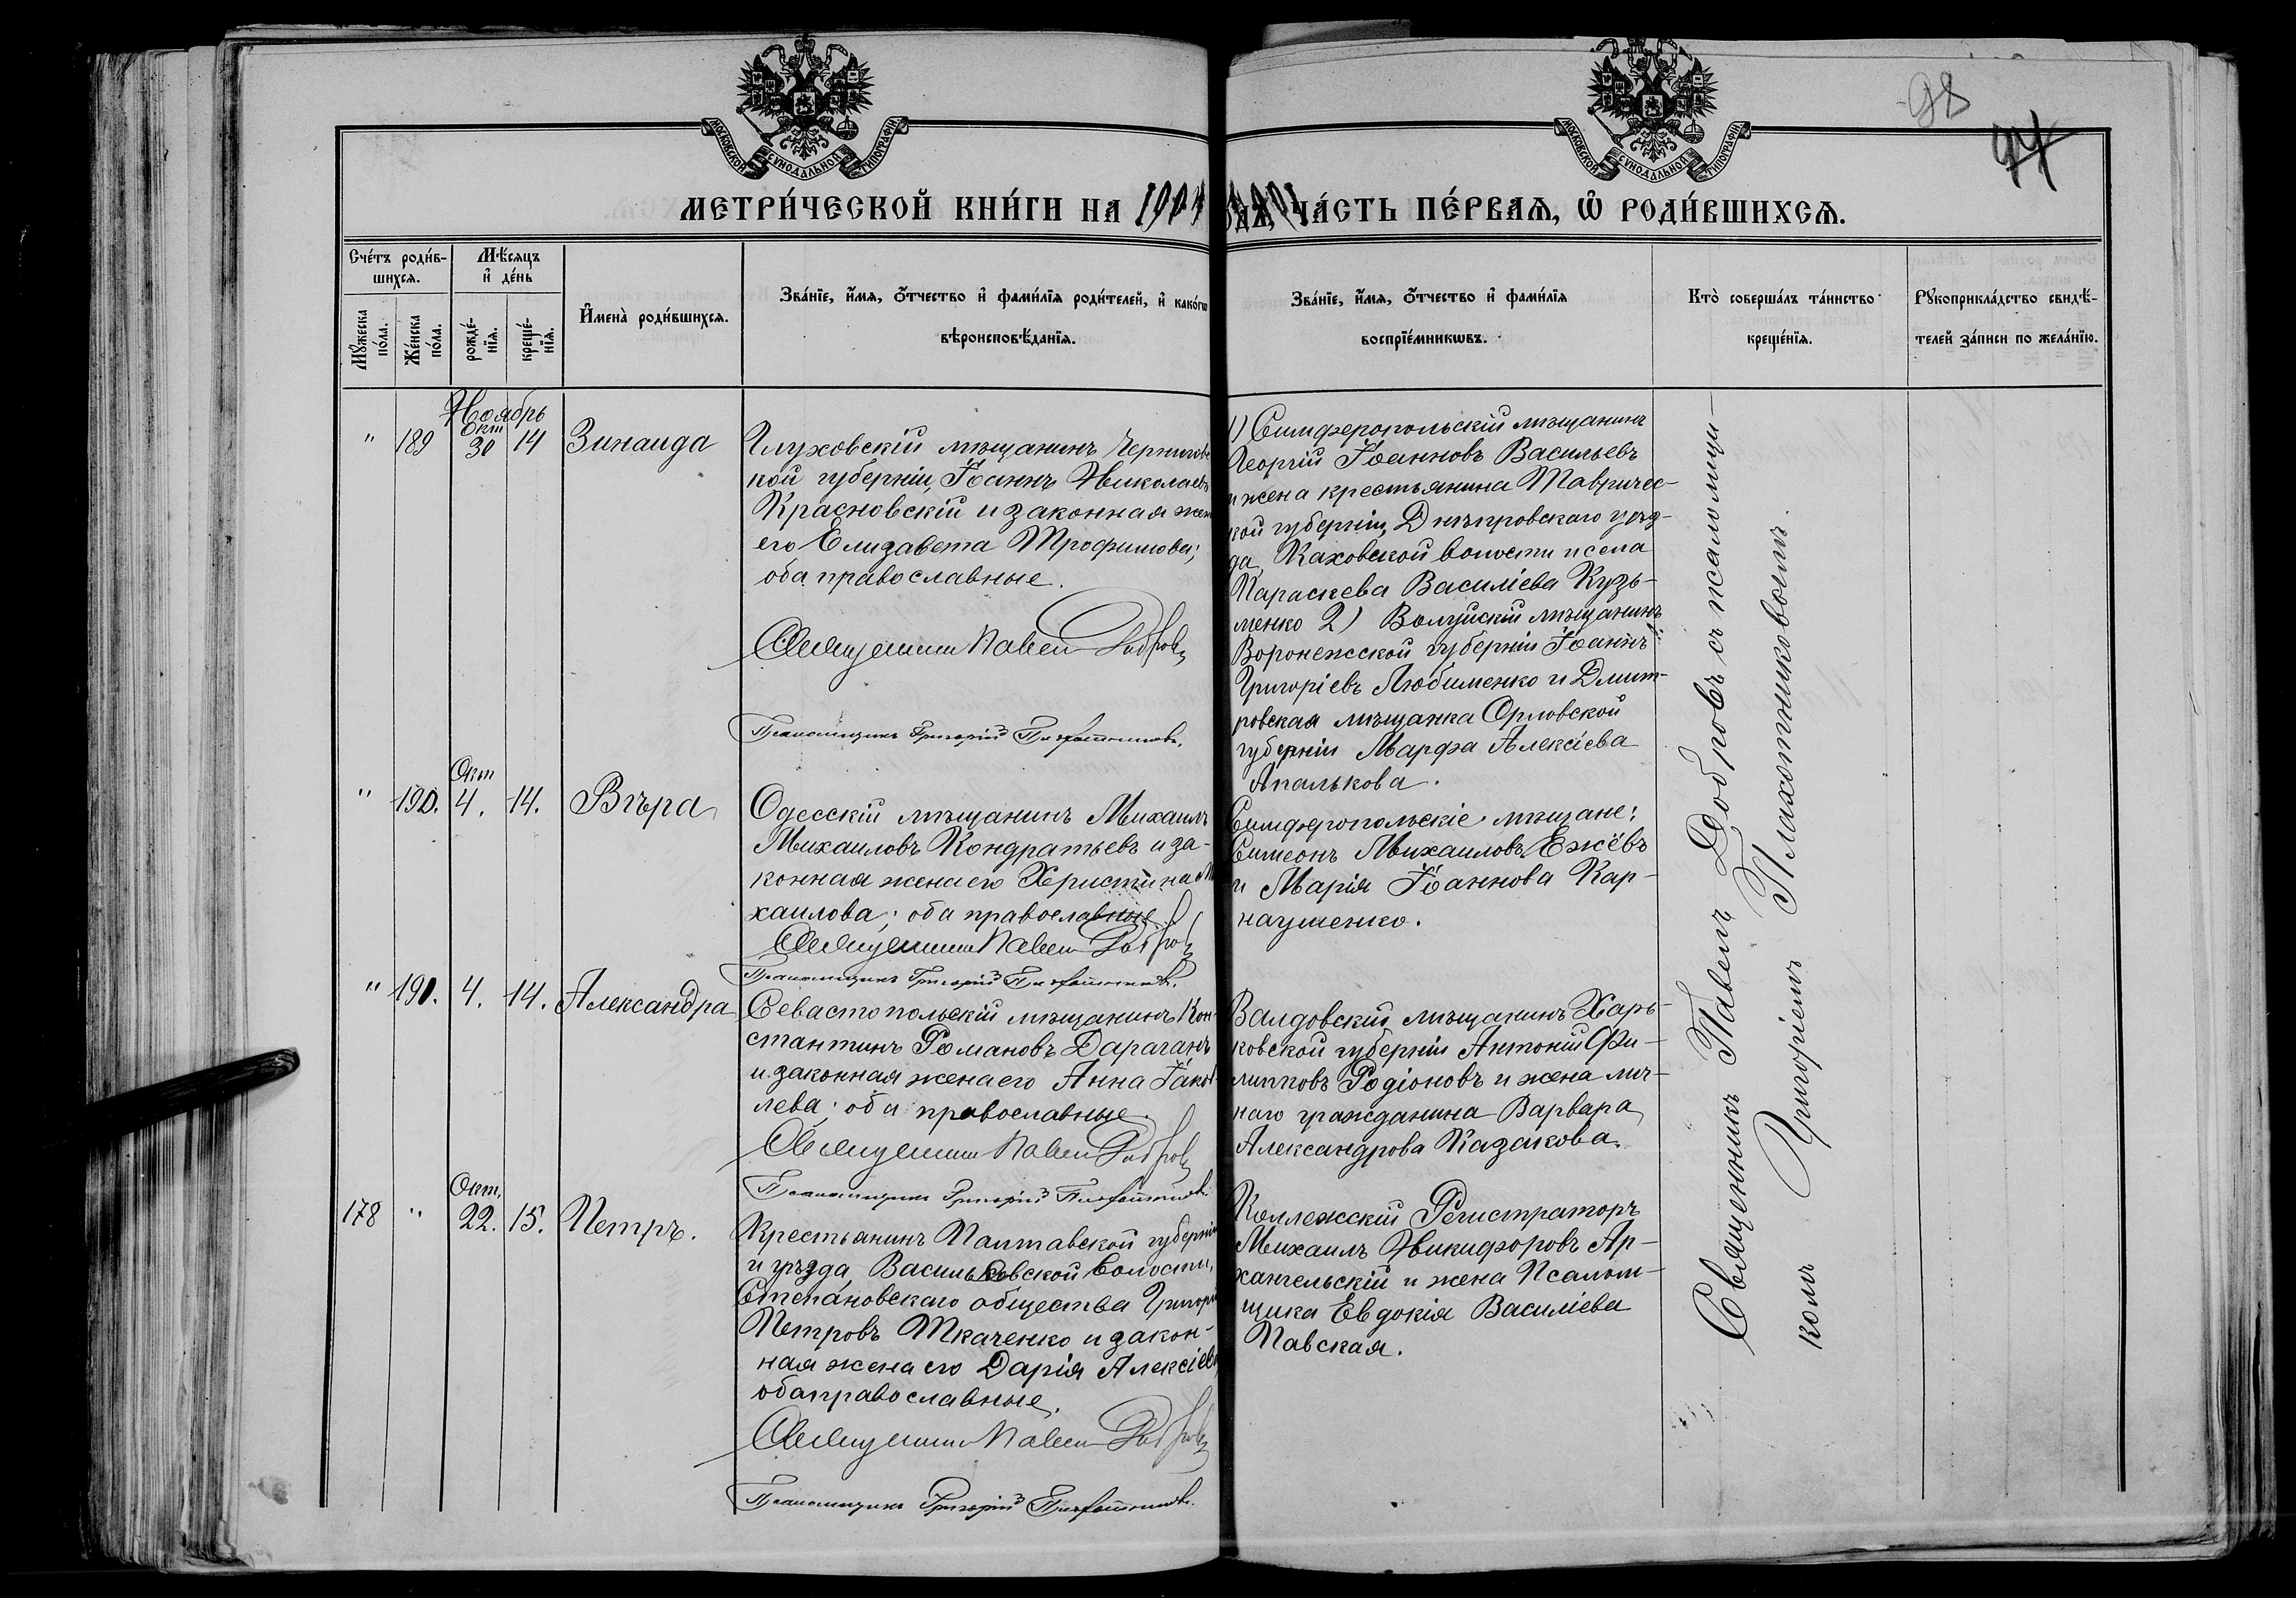 98
94
МОСКОВСКОЙ СѴНОДАЛЬНОЙ ТИПОГРАФІИ
МОСКОВСКОЙ СѴНОДАЛЬНОЙ ТИПОГРАФІИ
МЕТРИ́ЧЕСКОЙ КНИ́ГИ НА 1901 ЧА́СТЬ ПЕ́РВАЯ, Ѡ РОДИ́ВШИХСЯ.
Сче́тъ роди́в-
шихся.
Мꙋжеска
по́ла.
Же́нска
по́ла.
Мѣ́сяцъ
и҆ де́нь
рожде́-
нїя.
креще́-
нїя.
И҆мена̀ роди́вшихся.
Зва́нїе, и҆́мя, о҆́тчество и҆ фами́лїя роди́телей, и҆ како́гѡ
вѣроисповѣ́данїя.
Зва́нїе, и҆́мя, о҆́тчество и҆ фами́лїя
воспрїе́мникѡвъ.
Кто̀ соверша́лъ та́инство
креще́нїя.
Рꙋкоприкла́дство свидѣ́-
телей за́писи по жела́нїю.
Ноябрь
" 189 Окт 30 14 Зинаида
Глуховскій мѣщанинъ Чернигов
кой губерніи, Іоаннъ Николаевъ
Красновскій и законная жен
его Елизавета Трофимова;
оба православные.
Священникъ Павелъ Добровъ
Псаломщикъ Григорій Плахотниковъ.
1) Симферопольскій мѣщанинъ
Георгій Іоанновъ Васильевъ
и жена крестьянина Тавричес-
кой губерніи, Днѣпровскаго уѣз-
да, Каховской волости и села
Параскева Василіева Кузь-
менко 2) Волуйскій мѣщанинъ
Воронежской губерніи Іоаннъ
Григоріевъ Любименко и Дмит-
ровская мѣщанка Орловской
губерніи Марфа Алексіева
Апалькова.
" 190. Окт 4. 14. Вѣра
Одесскій мѣщанинъ Михаилъ
Михаиловъ Кондратьевъ и за-
конная жена его Христина М
хаилова; оба православные.
Священникъ Павелъ Добровъ
Псаломщикъ Григорій Плахотниковъ.
Симферопольскіе мѣщане:
Симеонъ Михаиловъ Ежёвъ
и Марія Іоаннова Кар-
наушенко.
" 191. 4. 14. Александра
Севастопольскій мѣщанинъ Кон-
стантинъ Романовъ Дараганъ
и законная жена его Анна Іаков
лева; оба православные.
Священникъ Павелъ Добровъ
Псаломщикъ Григорій Плахотниковъ.
Валдовскій мѣщанинъ Харь-
ковской губерніи Антоній Фи-
липповъ Родіоновъ и жена лич-
наго гражданина Варвара
Александрова Казакова.
178 " Окт. 22. 15. Петръ.
Крестьянинъ Полтавской губерніи
и уѣзда, Васильевской волости,
Степановскаго общества Григорій
Петровъ Ткаченко и закон-
ная жена его Дарія Алексіев
оба православные.
Священникъ Павелъ Добровъ
Псаломщикъ Григорій Плахотниковъ.
Коллежскій Регистраторъ
Михаилъ Никифоровъ Ар-
хангельскій и жена Псалом-
щика Евдокія Василіева
Павская.
Священникъ Павелъ Добровъ съ псаломщи-
комъ Григоріемъ Плахотниковымъ.